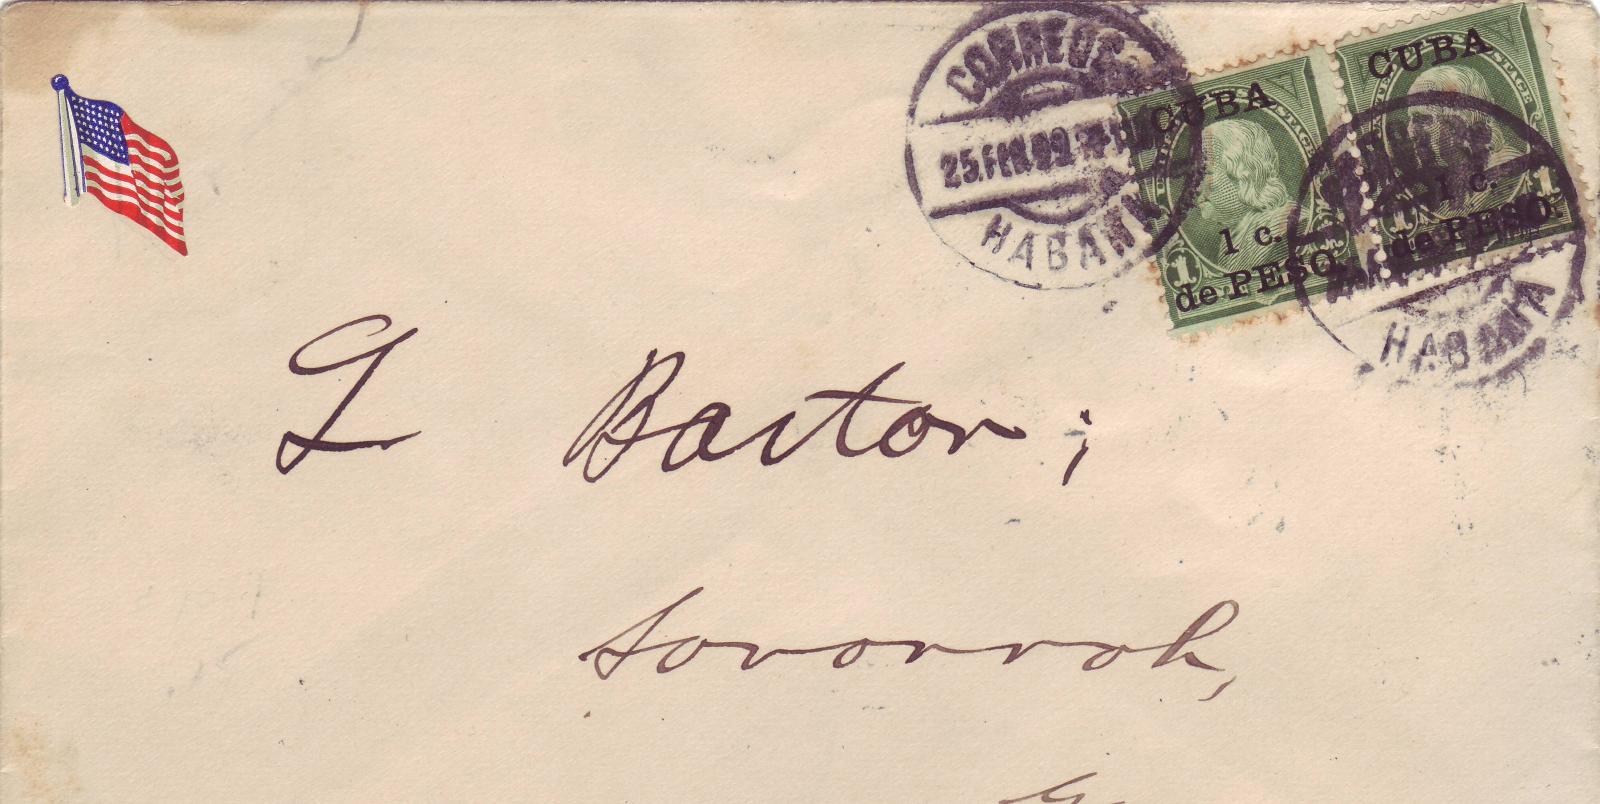 CORREOS
25.FEB.99
HABANA
CUBA
1 c.
de PESO.
1
CUBA
POSTAGE
1 c.
de PESO.
1
HABANA
G Barton;
Savannah,